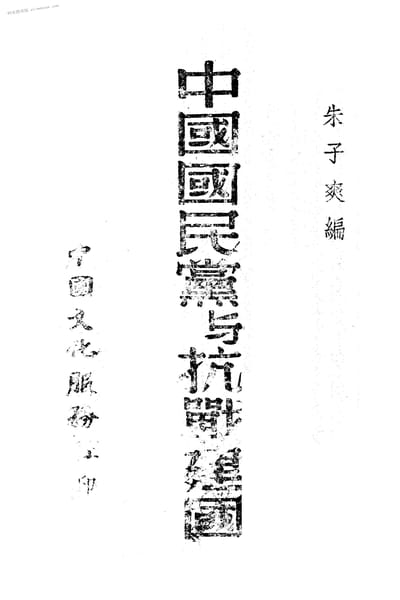 朱子爽編
中國國民黨与抗戰建國
中國文化服務社印